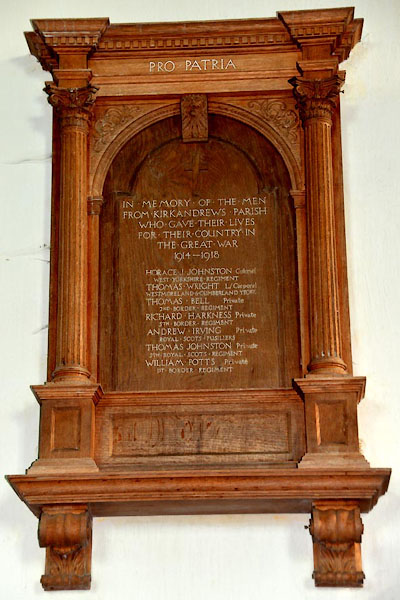 PRO PATRIA
IN · MEMORY · OF · THE · MEN
FROM · KIRKANDREWS · PARISH
WHO · GAVE · THEIR · LIVES
FOR · THEIR · COUNTRY · IN
THE · GREAT · WAR
1914 — 1918
HORACE J. JOHNSTON Colonel
WEST YORKSHIRE REGIMENT
THOMAS WRIGHT L/Corporal
WESTMORELAND & CUMBERLAND YEOY
THOMAS BELL Private
2ND BORDER REGIMENT
RICHARD HARKNESS Private
BORDER REGIMENT
ANDREW IRVING Private
ROYAL SCOTS FUSILIERS
THOMAS JOHNSTON Private
ROYAL SCOTS REGIMENT
WILLIAM POTTS Private
1ST BORDER REGIMENT